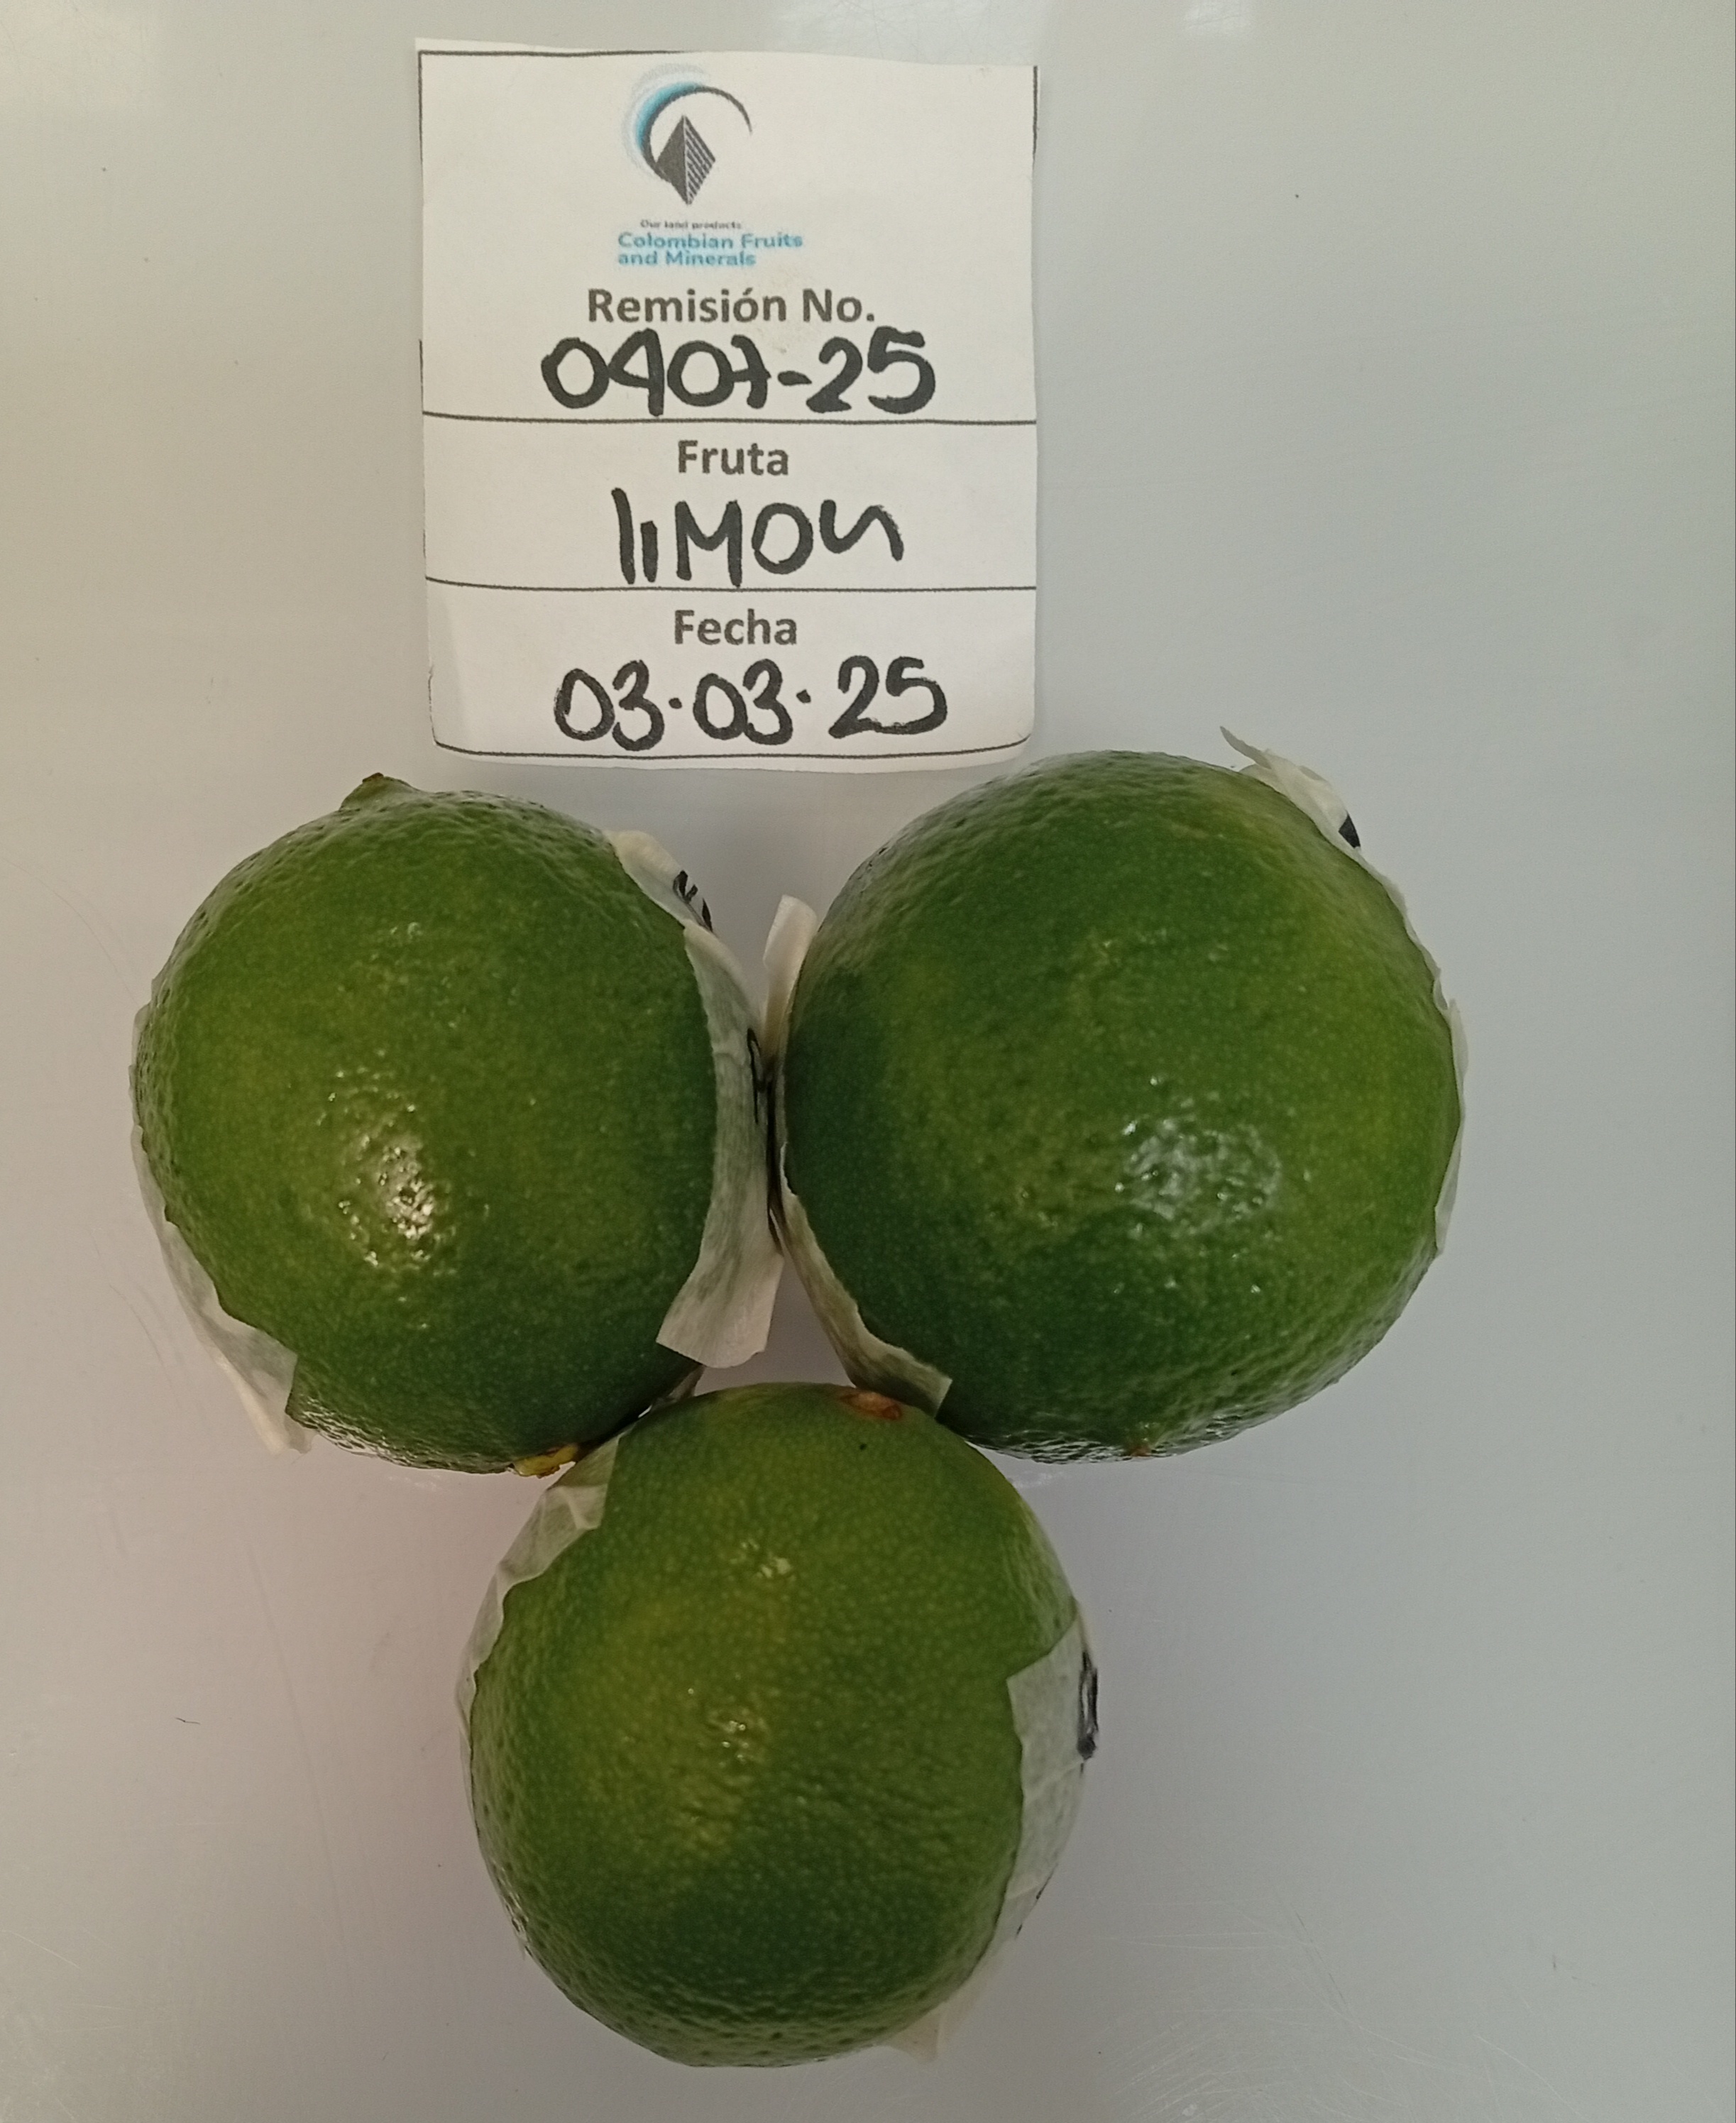 Our land products
Colombian Fruits
and Minerals
Remisión No.
0407-25
Fruta
limon
Fecha
03.03.25